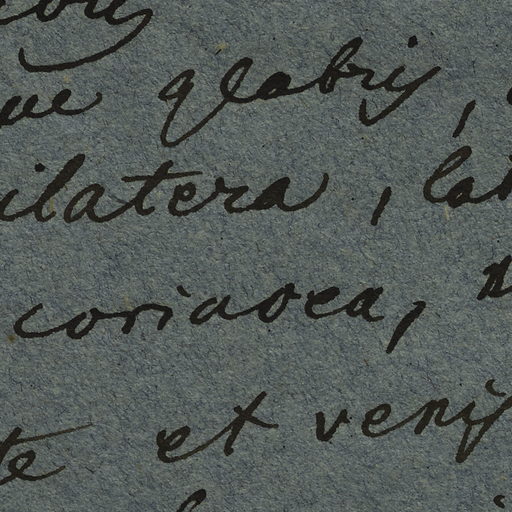 ue glabris,
ilatera, lat
coriacea,
te et venis